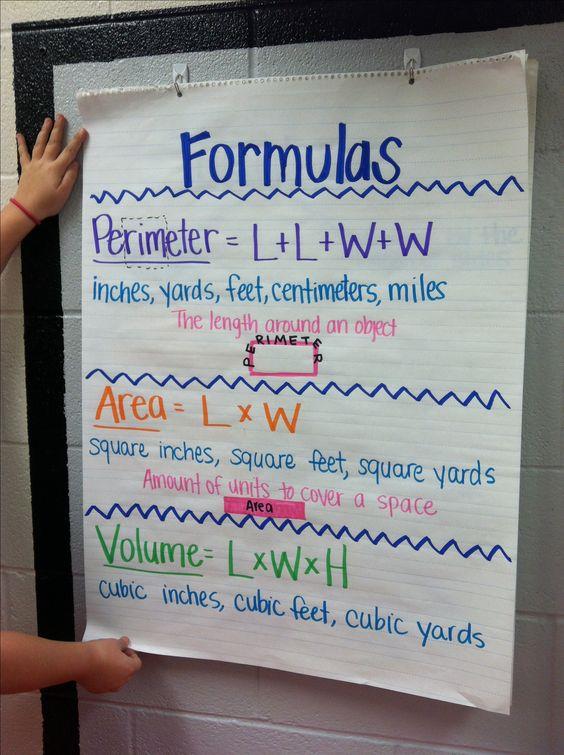 Formulas
Perimeter = L+L+W+W
inches, yards, feet, centimeters, miles
The length around an object
PERIMETER
Area = L x W
square inches, square feet, square yards
Amount of units to cover a space
Area
Volume = LxWxH
cubic inches, cubic feet, cubic yards